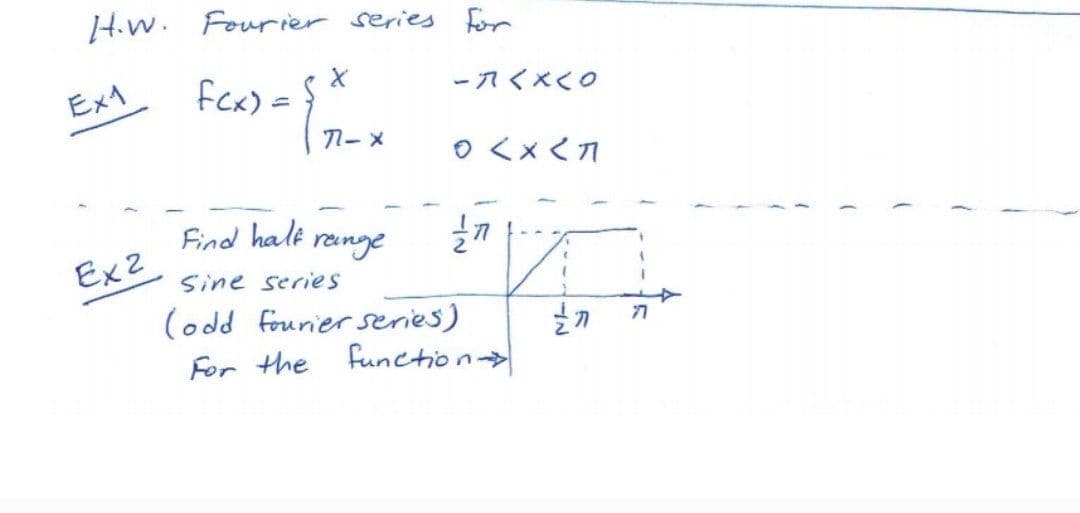 H.W. Fourier series for
Ex1 f(x) = { x -π < x < 0
π - x 0 < x < π
Ex2 Find half range
sine series
(odd fourier series)
For the function →
½π
½π π